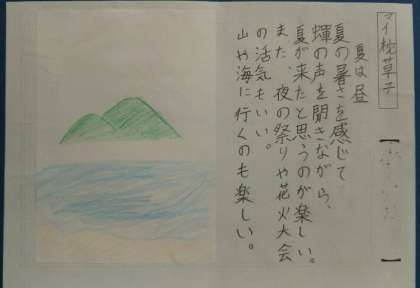 マイ枕草子
夏は昼
夏の暑さを感じて
蝉の声を聞きながら、
夏が来たと思うのが楽しい。
また、夜の祭りや花火大会
の活気もいい。
山や海に行くのも楽しい。